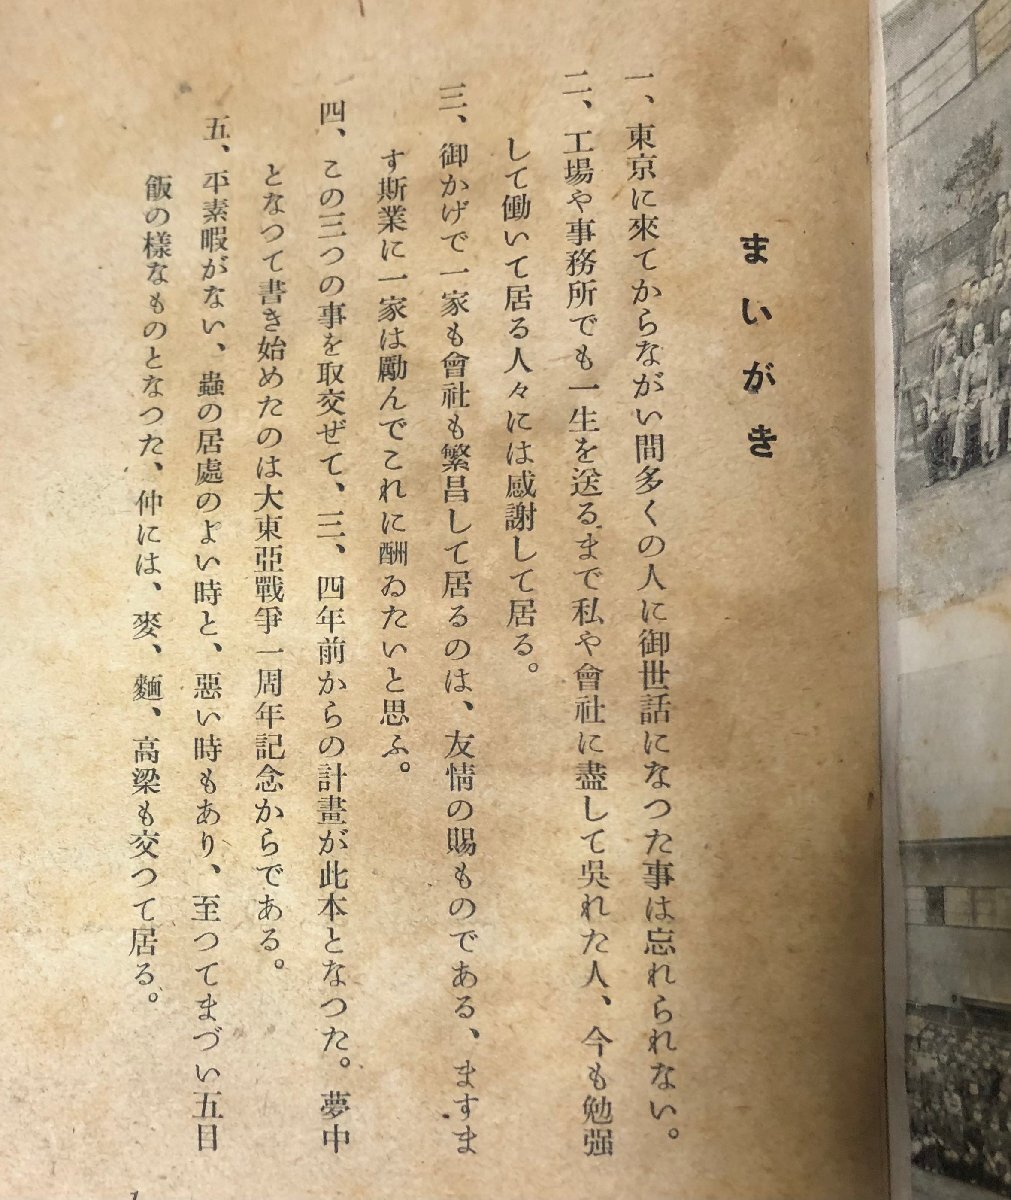 まいがき
一、東京に來てからながい間多くの人に御世話になつた事は忘れられない。
二、工場や事務所でも一生を送るまで私や會社に盡して吳れた人、今も勉强
して働いて居る人々には感謝して居る。
三、御かげで一家も會社も繁昌して居るのは、友情の賜ものである、ますま
す斯業に一家は勵んでこれに酬ゐたいと思ふ。
四、この三つの事を取交ぜて、三、四年前からの計畫が此本となつた。夢中
となつて書き始めたのは大東亞戰爭一周年記念からである。
五、平素暇がない、蟲の居處のよい時と、惡い時もあり、至つてまづい五目
飯の樣なものとなつた、仲には、麥、麵、高梁も交つて居る。
1